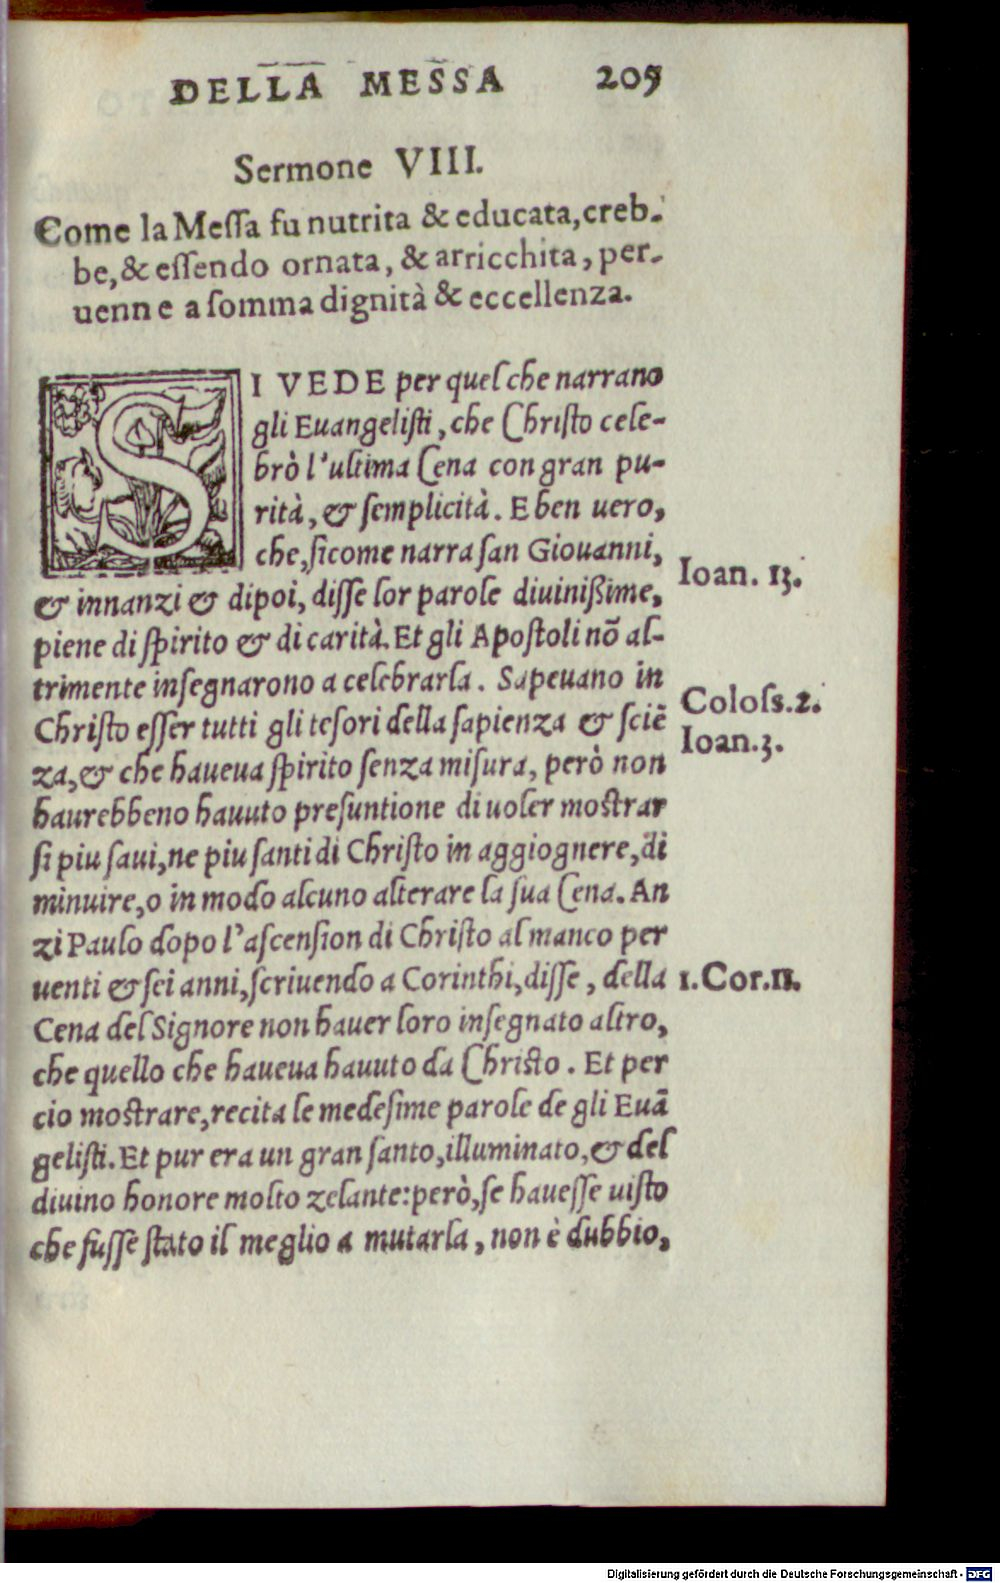 DELLA MESSA 205
Sermone VIII.
Come la Meſſa fu nutrita & educata, creb-
be, & eſſendo ornata, & arricchita, per-
uenne a ſomma dignità & eccellenza.
SI VEDE per quel che narrano
gli Euangeliſti, che Chriſto cele-
brò l'ultima Cena con gran pu-
rità, & ſemplicità. E ben uero,
che, ſicome narra ſan Giouanni,
Ioan. 13.
& innanzi & dipoi, diſſe lor parole diuinißime,
piene di ſpirito & di carità. Et gli Apoſtoli nõ al-
trimente inſegnarono a celebrarla. Sapeuano in
Coloſs. 2.
Chriſto eſſer tutti gli teſori della ſapienza & ſciẽ
Ioan. 3.
za, & che haueua ſpirito ſenza miſura, però non
haurebbeno hauuto preſuntione di uoler moſtrar
ſi piu ſaui, ne piu ſanti di Chriſto in aggiognere, di
minuire, o in modo alcuno alterare la ſua Cena. An
zi Paulo dopo l'aſcenſion di Chriſto al manco per
uenti & ſei anni, ſcriuendo a Corinthi, diſſe, della
1. Cor. 11.
Cena del Signore non hauer loro inſegnato altro,
che quello che haueua hauuto da Chriſto. Et per
cio moſtrare, recita le medeſime parole de gli Euã
geliſti. Et pur era un gran ſanto, illuminato, & del
diuino honore molto zelante: però, ſe haueſſe uiſto
che fuſſe ſtato il meglio a mutarla, non è dubbio,
Digitalisierung gefördert durch die Deutsche Forschungsgemeinschaft - DFG